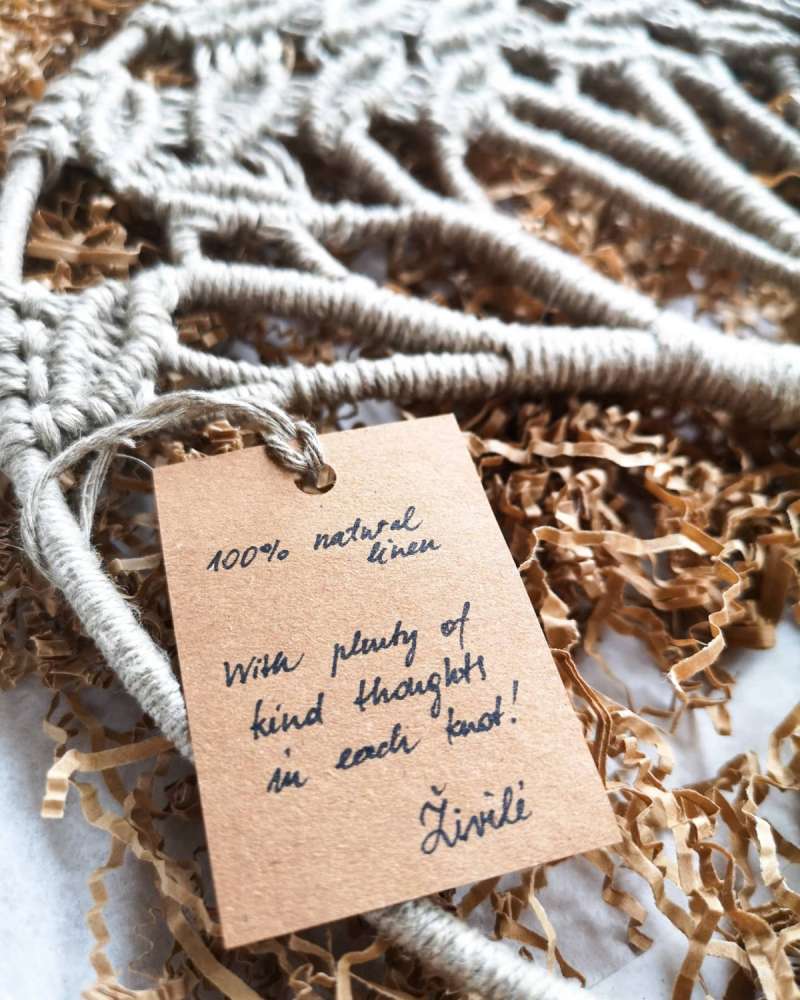 100% natural
linen
With plenty of
kind thoughts
in each knot!
Živilė